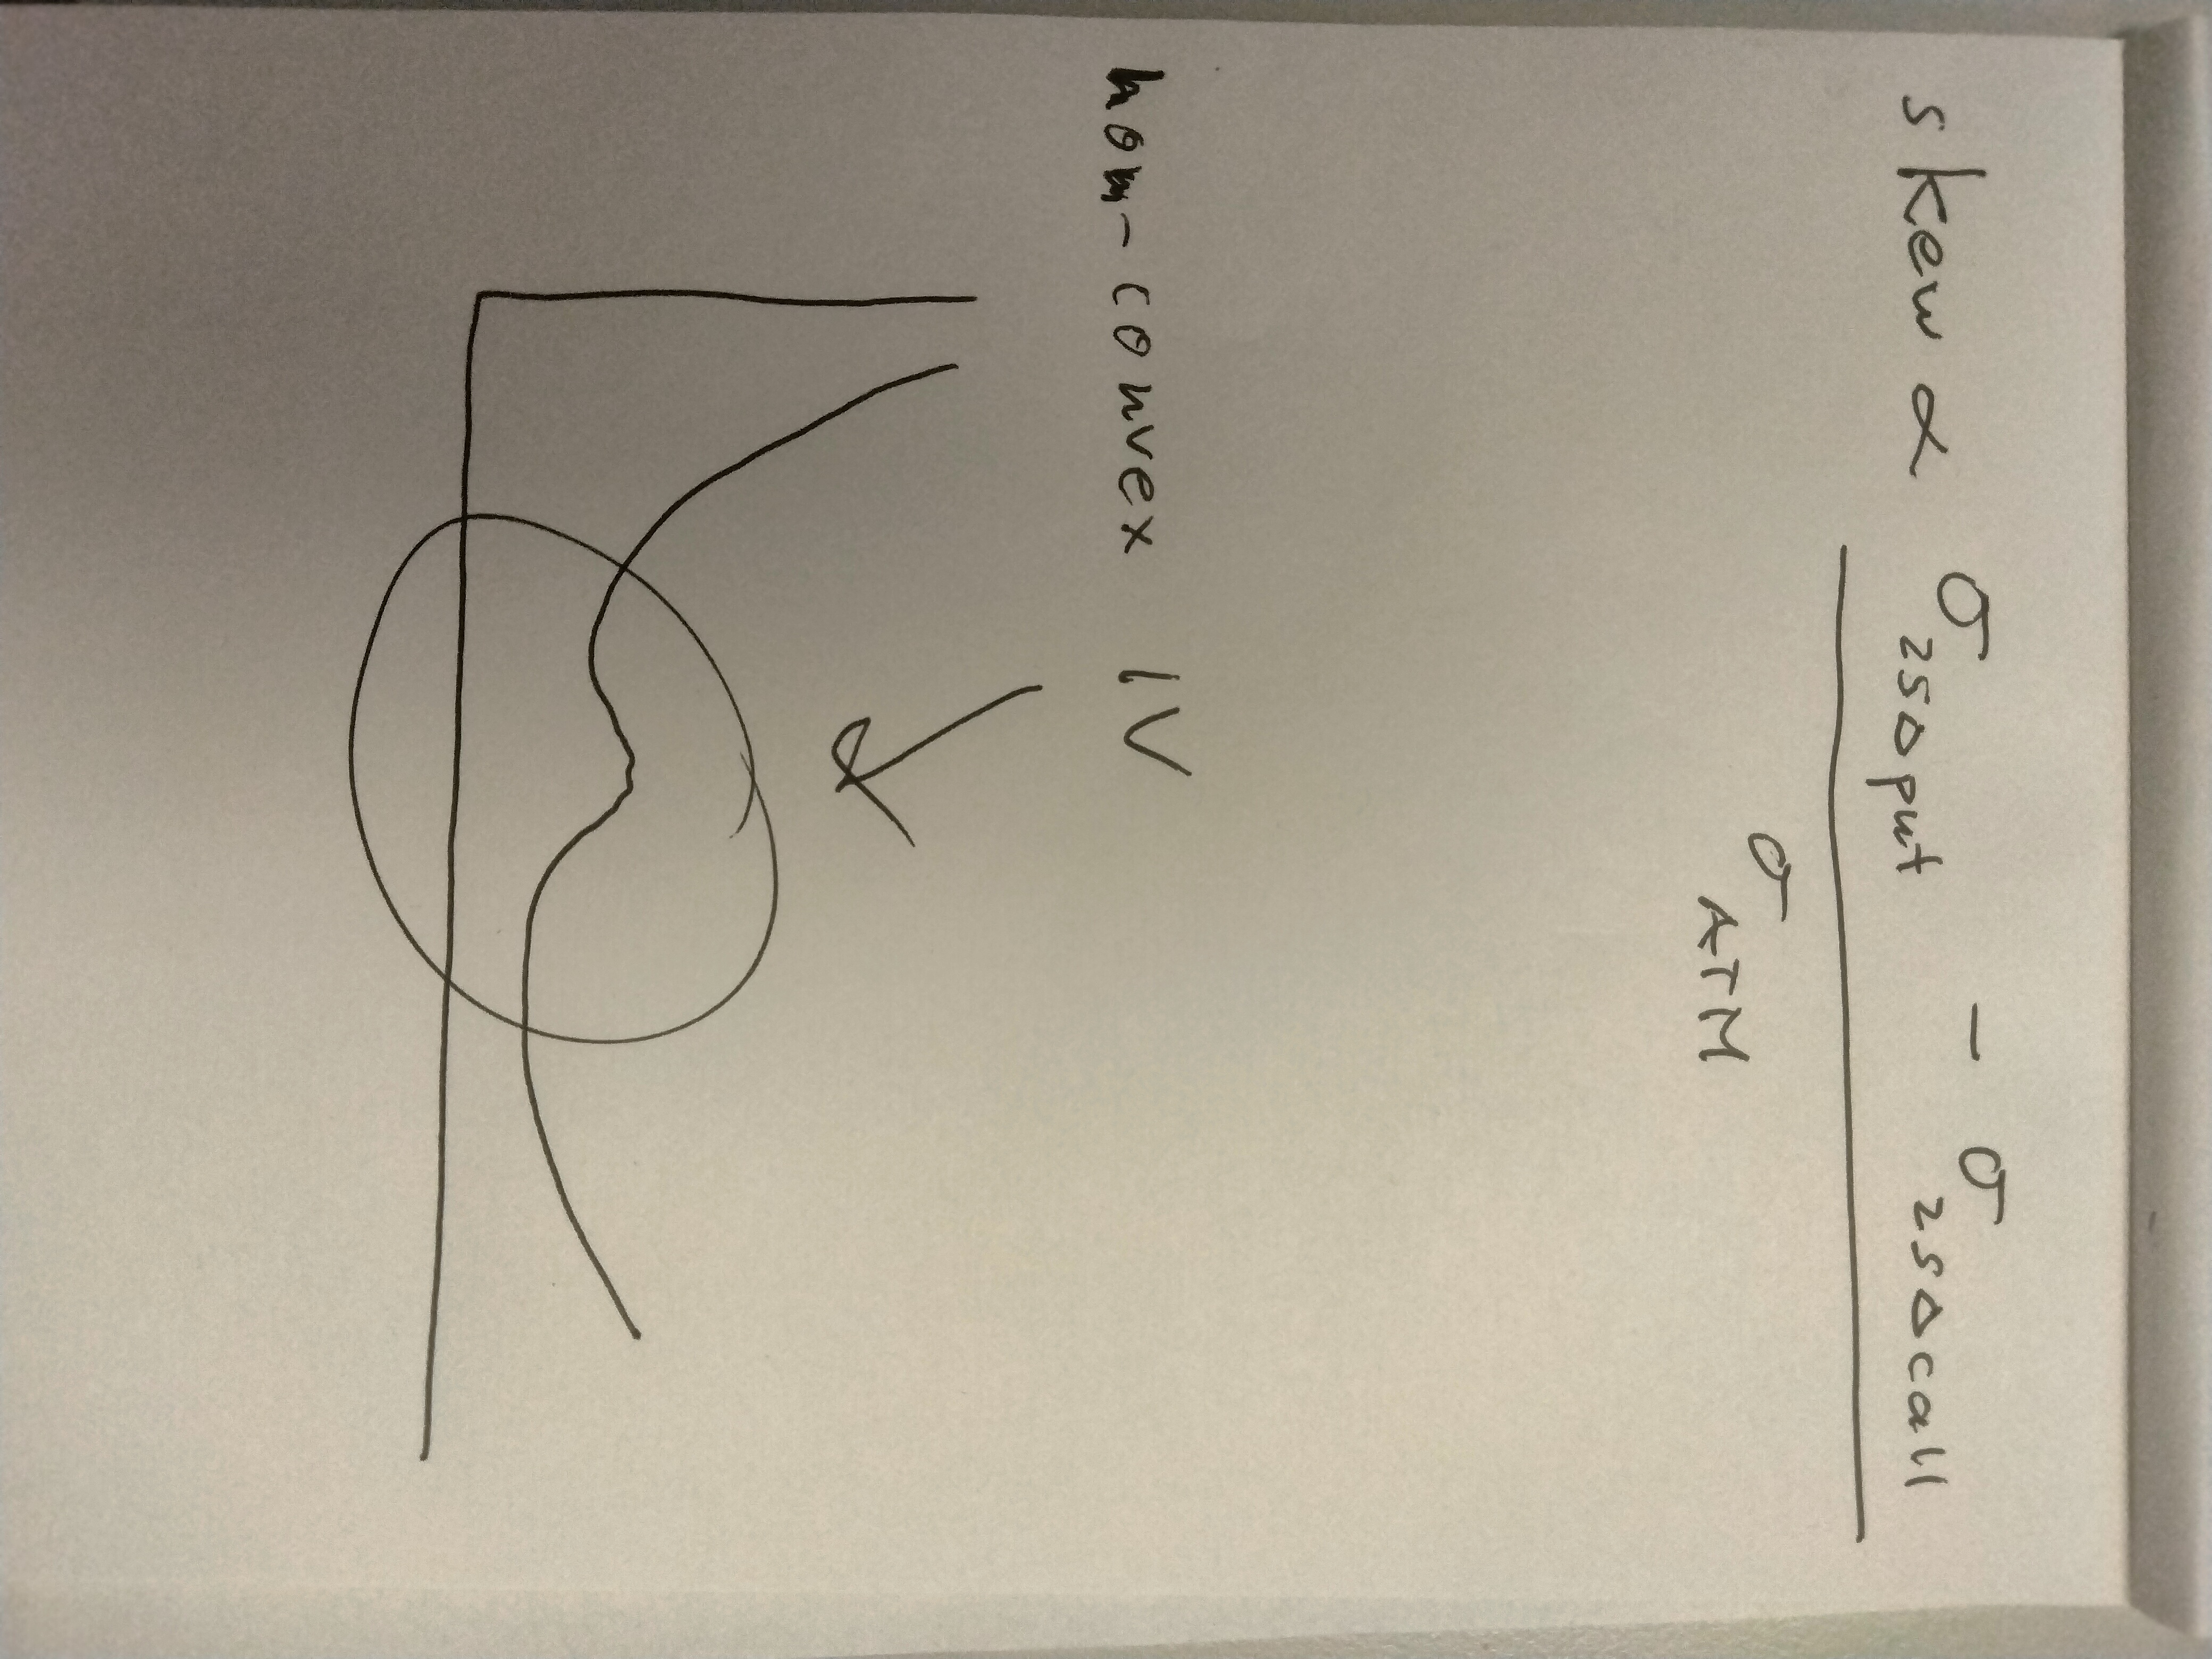 skew ∝ σ25Δput - σ25Δcall
σATM
non-convex IV